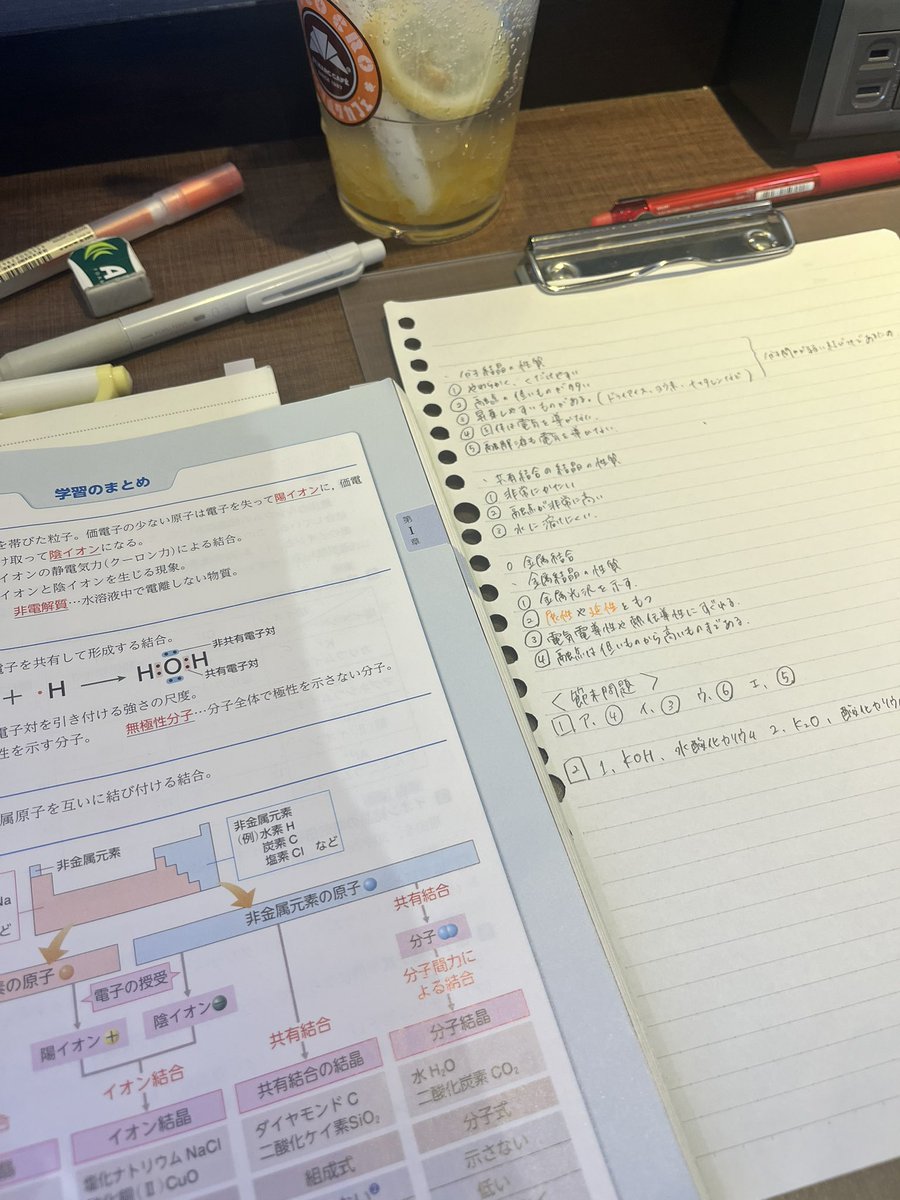 SINCE 1997
学習のまとめ
を帯びた粒子。価電子の少ない原子は電子を失って陽イオンに，価電
け取って陰イオンになる。
イオンの静電気力(クーロン力)による結合。
イオンと陰イオンを生じる現象。
非電解質…水溶液中で電離しない物質。
電子を共有して形成する結合。
+ ・H → H O H
非共有電子対
共有電子対
電子対を引き付ける強さの尺度。
性を示す分子。 無極性分子…分子全体で極性を示さない分子。
属原子を互いに結び付ける結合。
第
1
章
非金属元素
非金属元素
(例)水素 H
炭素 C
塩素 Cl など
Na
ど
非金属元素の原子
素の原子
電子の授受
陽イオン
陰イオン
イオン結合
共有結合
共有結合
分子
分子間力に
よる結合
イオン結晶
塩化ナトリウム NaCl
(Ⅱ) CuO
共有結合の結晶
ダイヤモンド C
二酸化ケイ素 SiO₂
組成式
分子結晶
水 H₂O
二酸化炭素 CO₂
分子式
示さない
低い
、分子結晶の性質
① やわらかく、くだけやすい
② 融点の低いものが多い
③ 昇華しやすいものがある。(ドライアイス、ヨウ素、ナフタレンなど)
④ 固体は電気を導かない。
⑤ 融解液も電気を導かない。
、共有結合の結晶の性質
① 非常にかたい
② 融点が非常に高い
③ 水に溶けにくい。
○ 金属結合
、金属結晶の性質
① 金属光沢を示す。
② 展性や延性をもつ
③ 電気電導性や熱伝導性にすぐれる。
④ 融点は低いものから高いものまである。
〈節末問題〉
1 ア、④ イ、③ ウ、⑥ エ、⑤
2 1、KOH、水酸化カリウム 2、K₂O、酸化カリウ